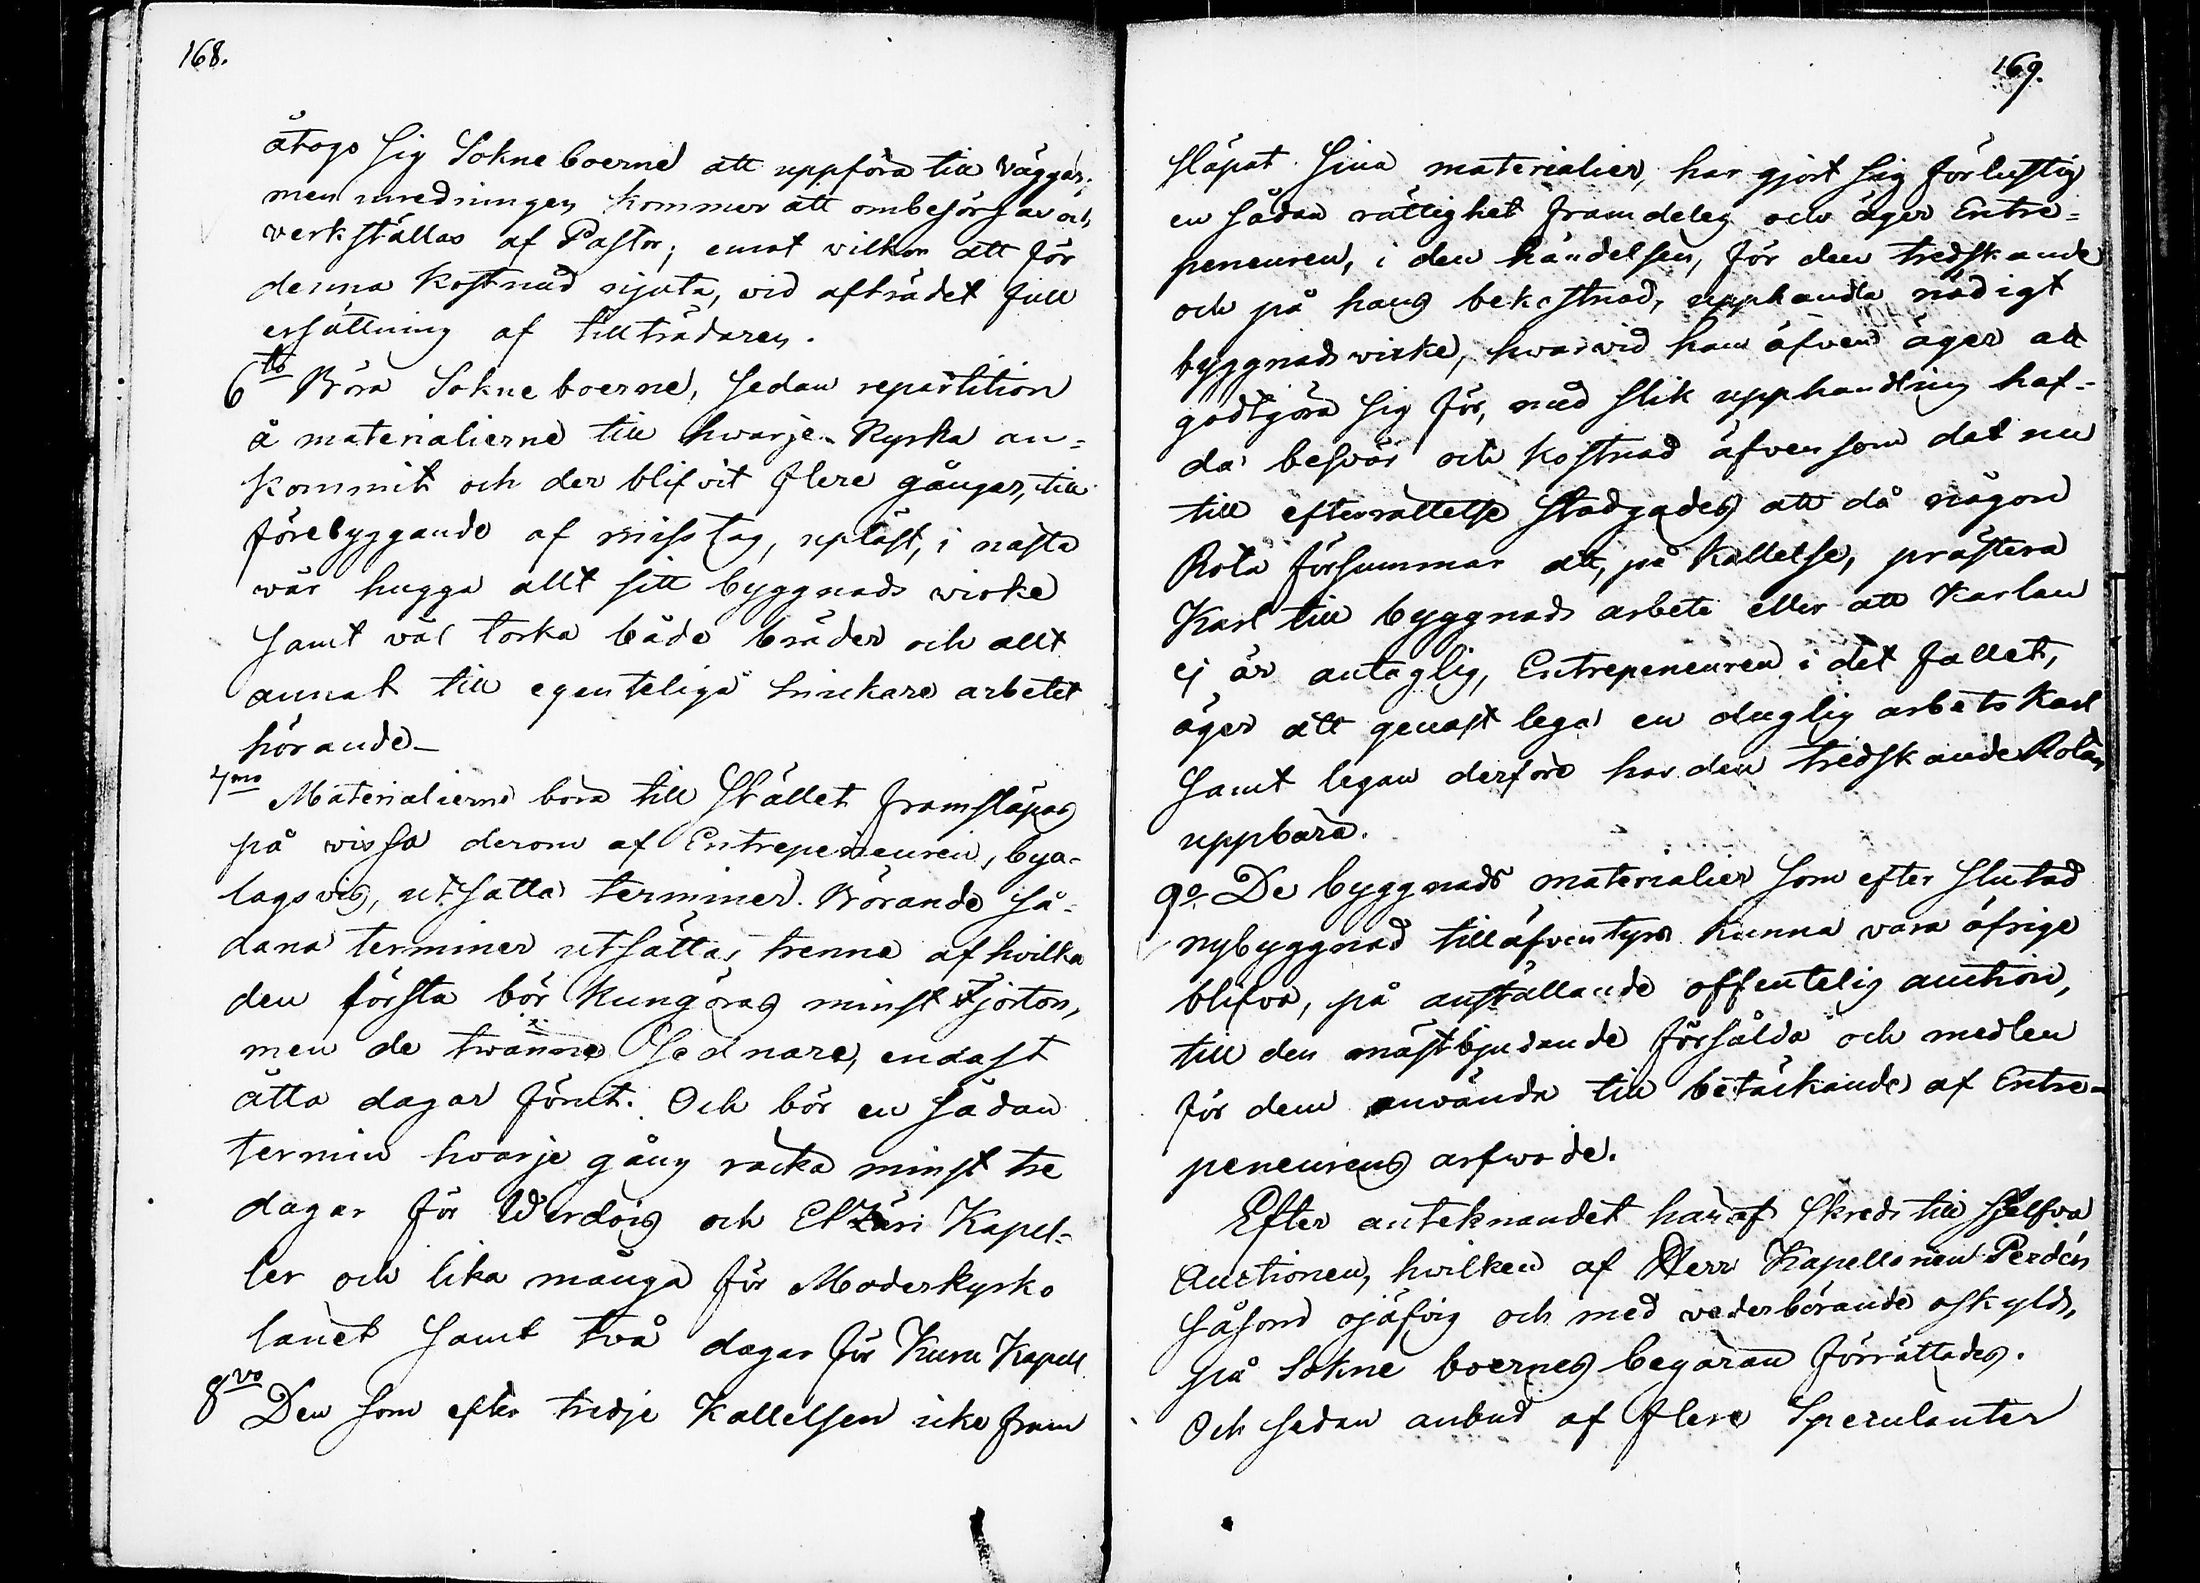 168.
åtogo sig Sokneboerne att uppföra till väggar;
men inredningen kommer att ombesörjas och
verkställas af Pastor; emot wilkor att för
denna kostnad njuta, vid afträdet full
ersättning af tillträdaren.
6to Böra Sokneboerne, sedan repartition
å materialierne till hwarje Kyrka an=
kommit och der blifvit flere gånger, till
förebyggande af misstag, upläst, i nästa
vår hugga allt sitt byggnads virke
samt väl torka både bräder och allt
annat till egenteliga snickare arbetet
hörande_
7mo Materialierne böra till stället framsläpas
på vissa derom af Entrepeneuren, bya-
lagsvis, utsatta terminer. Börande så-
dana terminer utsättas trenne af hvilka
den första bör kungöras minst fjorton,
men de twänne sednare, endast
åtta dagar förut. Och bör en sådan
termin hvarje gång räcka minst tre
dagar för Werdois och Etzäri Kapel-
ler och lika många för Moderkyrko
länet samt två dagar för Kuru Kapell
8vo Den som efter tredje Kallelsen icke fram
169.
släpat sina materialier, har gjort sig förlustig
en sådan rättighet framdeles och äger Entre=
peneuren, i den händelsen, för den tredskande
och på hans bekostnad, upphandla nödigt
byggnadsvirke, hwarvid han äfven äger att
godtgöra sig för, med slik upphandling haf-
da besvär och kostnad äfvensom det nu
till efterrättelse stadgades att då någon
Rota försummar att, på Kallelse, prästera
Karl till byggnads arbete eller att Karlan
ej är antaglig, Entrepeneuren i det fallet,
äger att genast lega en duglig arbets Karl
samt legan derföre har den tredskande Rotan
uppbära.
9o De byggnads materialier som efter slutad
nybyggnad tilläfventyrs kunna vara öfrige
blifva, på anställande offentelig auction,
till den mästbjudande försålda och medlen
för dem använda till betäckande af Entre-
peneurens arfwode.
Efter anteknandet häraf skreds till sjelfva
Auctionen, hvilken af Herr Kapellanen Perdén
såsom ojäfvig och med vederbörande oskyld,
på Sokne boernes begäran förrättades.
Och sedan anbud af flere Speculanter